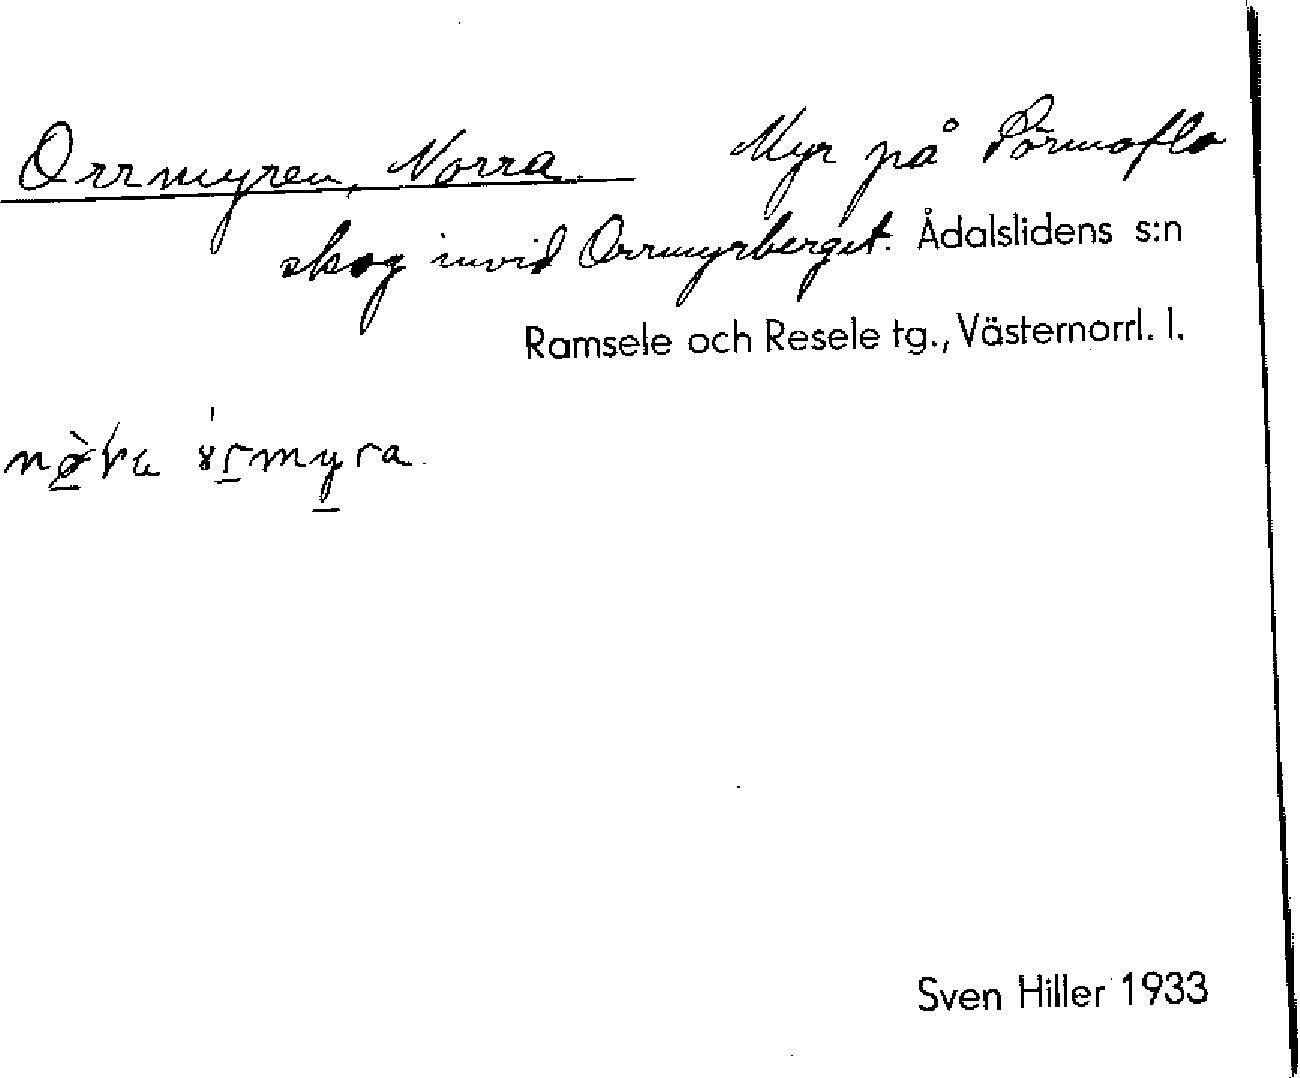 Orrmyren, Norra Myr på Pörmoflo
skog invid Orrmyrberget. Ådalslidens s:n
Ramsele och Resele tg., Västernorrl. l.
Sven Hiller 1933